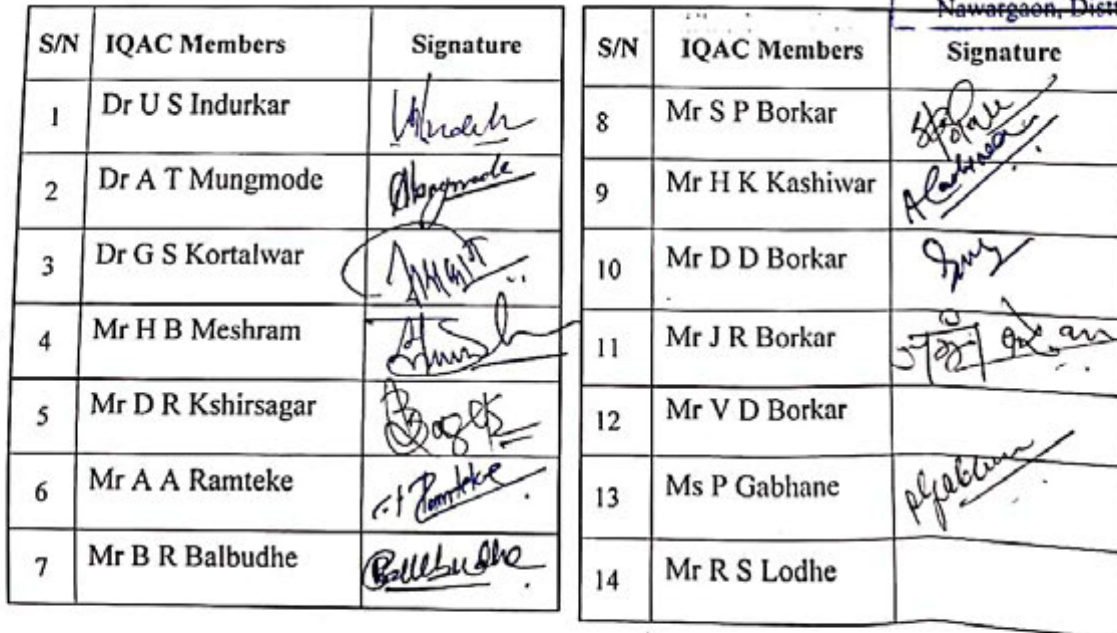 Nawargaon, Dist
S/N IQAC Members Signature
1 Dr U S Indurkar
2 Dr A T Mungmode
3 Dr G S Kortalwar
4 Mr H B Meshram
5 Mr D R Kshirsagar
6 Mr A A Ramteke Ramteke
7 Mr B R Balbudhe Balbudhe
S/N IQAC Members Signature
8 Mr S P Borkar
9 Mr H K Kashiwar
10 Mr D D Borkar
11 Mr J R Borkar
12 Mr V D Borkar
13 Ms P Gabhane
14 Mr R S Lodhe